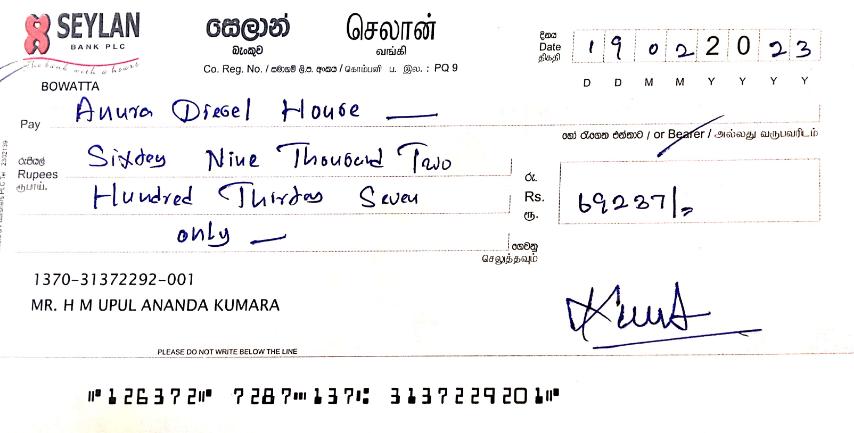 SEYLAN
BANK PLC
the bank with a heart
සෙලාන්
බැංකුව
செலான்
வங்கி
Co. Reg. No. / සමාගම් ලි.ප. අංකය / கொம்பனி ப. இல. : PQ 9
දිනය
Date
திகதி
1 9 0 2 2 0 2 3
D D M M Y Y Y Y
BOWATTA
Pay Anura Diesel House
හෝ රැගෙන එන්නාට / or Bearer / அல்லது வருபவரிடம்
රුපියල්
Rupees
ரூபாய்.
Sixtey Nine Thousand Two
Hundred Thirtey Seven
only
රු.
Rs.
ரூ.
69237/=
ගෙවනු
செலுத்தவும்
1370-31372292-001
MR. H M UPUL ANANDA KUMARA
PLEASE DO NOT WRITE BELOW THE LINE
⑈126372⑈ 7287⑉137⑆ 3137229201⑈